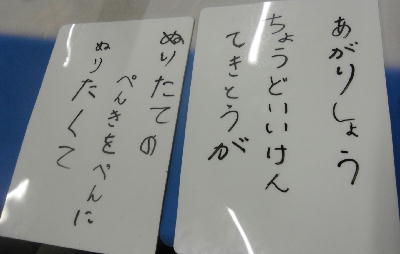 あがりしょう
ちょうどいいけん
てきとうが
ぬりたての
ぺんきをぺんに
ぬりたくて